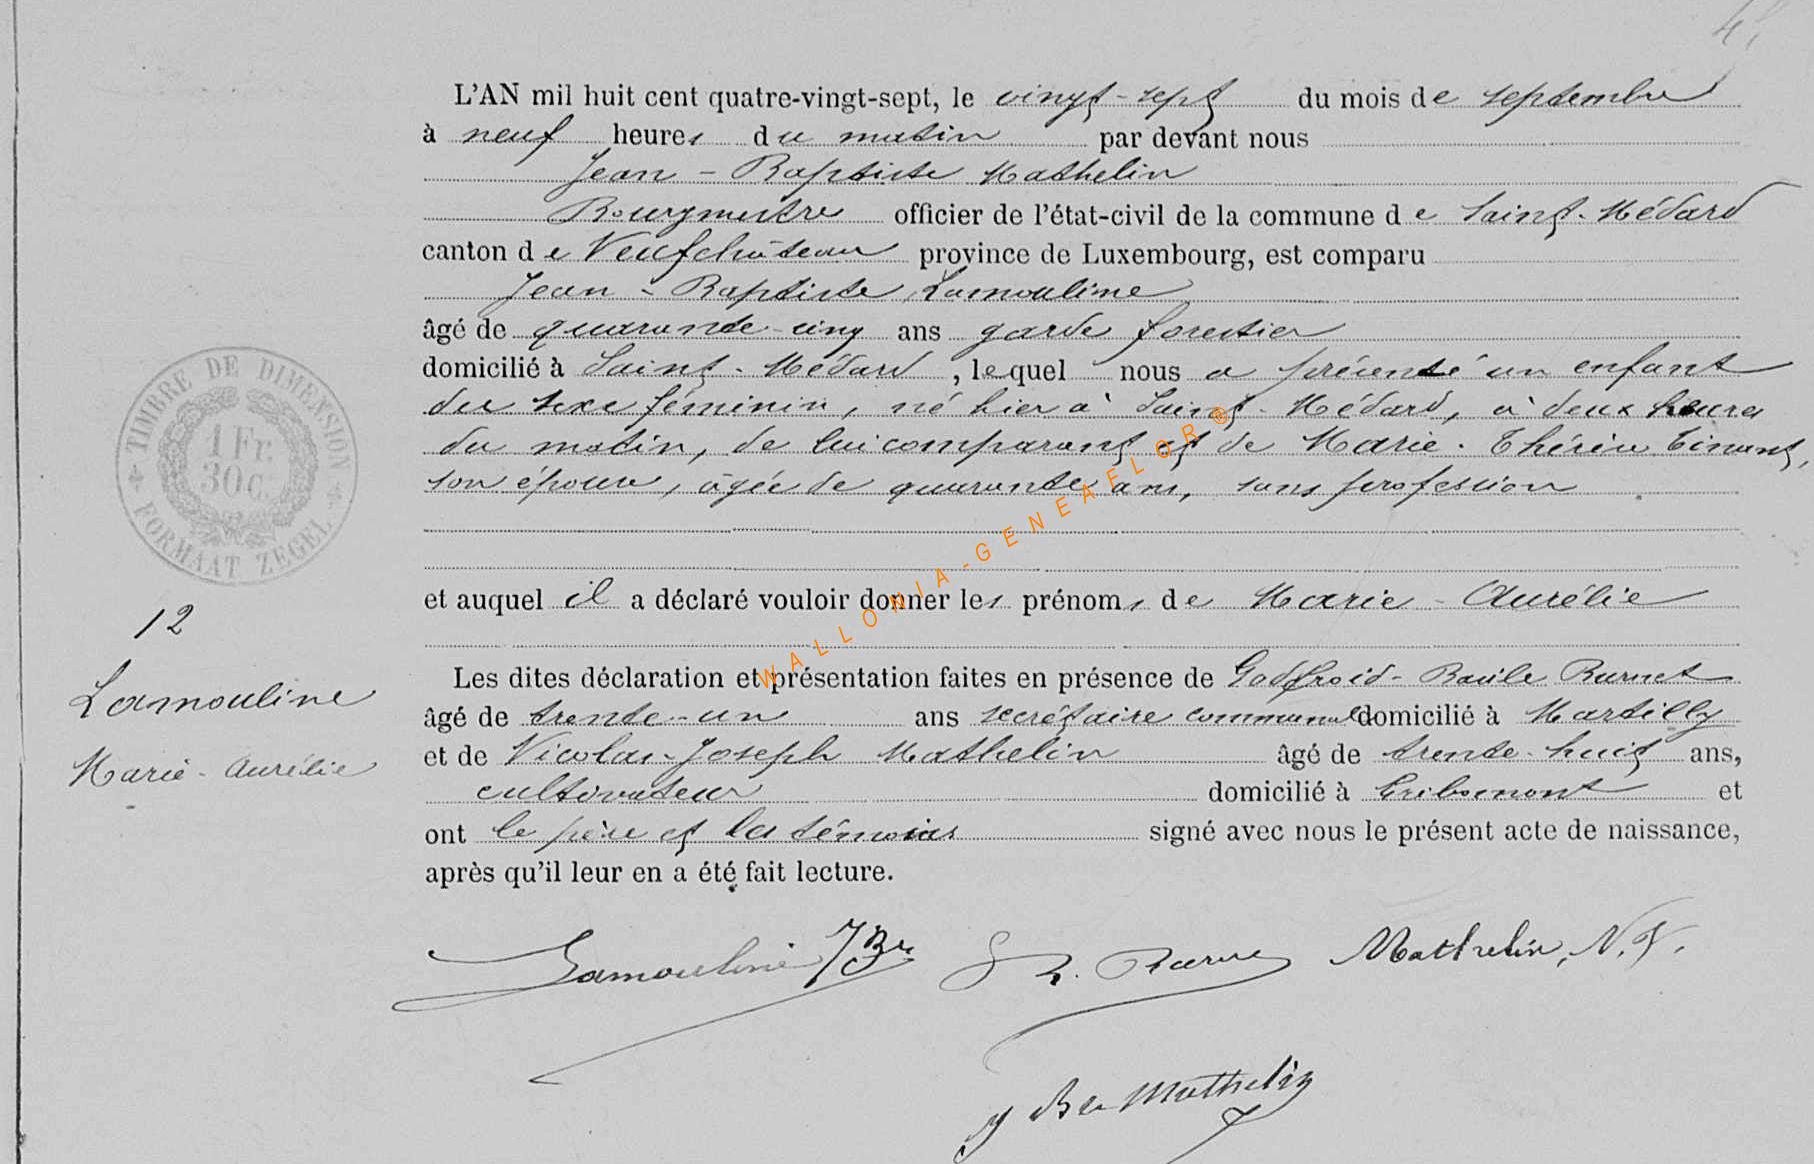 L'AN mil huit cent quatre-vingt-sept, le vingt-sept du mois de septembre
à neuf heures du matin par devant nous
Jean-Baptiste Mathelin
Bourgmestre officier de l'état-civil de la commune de Saint-Médard
canton de Neufchâteau province de Luxembourg, est comparu
Jean-Baptiste Lamouline
âgé de quarante-cinq ans garde forestier
domicilié à Saint-Médard, lequel nous a présenté un enfant
du sexe féminin, né hier à Saint-Médard, à deux heures
du matin, de lui comparant et de Marie-Thérèse
son épouse, âgée de quarante ans, sans profession
et auquel il a déclaré vouloir donner les prénoms de Marie-Aurélie
Les dites déclaration et présentation faites en présence de Godfroid-
âgé de trente-un ans secrétaire communal domicilié à Martilly
et de Nicolas-Joseph Mathelin âgé de trente-huit ans,
cultivateur domicilié à Gribomont et
ont le père et les témoins signé avec nous le présent acte de naissance,
après qu'il leur en a été fait lecture.
TIMBRE DE DIMENSION
1 Fr.
30 C.
FORMAAT ZEGEL
12
Lamouline
Marie-Aurélie
Lamouline JBte
Mathelin, N. J.
J Bte Mathelin
WALLONIA-GENEAFLOR®